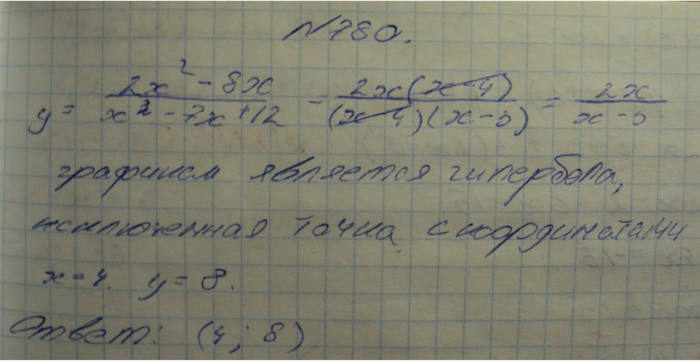 №780.
y = (2x² - 8x)/(x² - 7x + 12) = (2x(x-4))/((x-4)(x-3)) = 2x/(x-3)
графиком является гипербола,
исключенная точка с координатами
x=4. y=8.
Ответ: (4; 8)